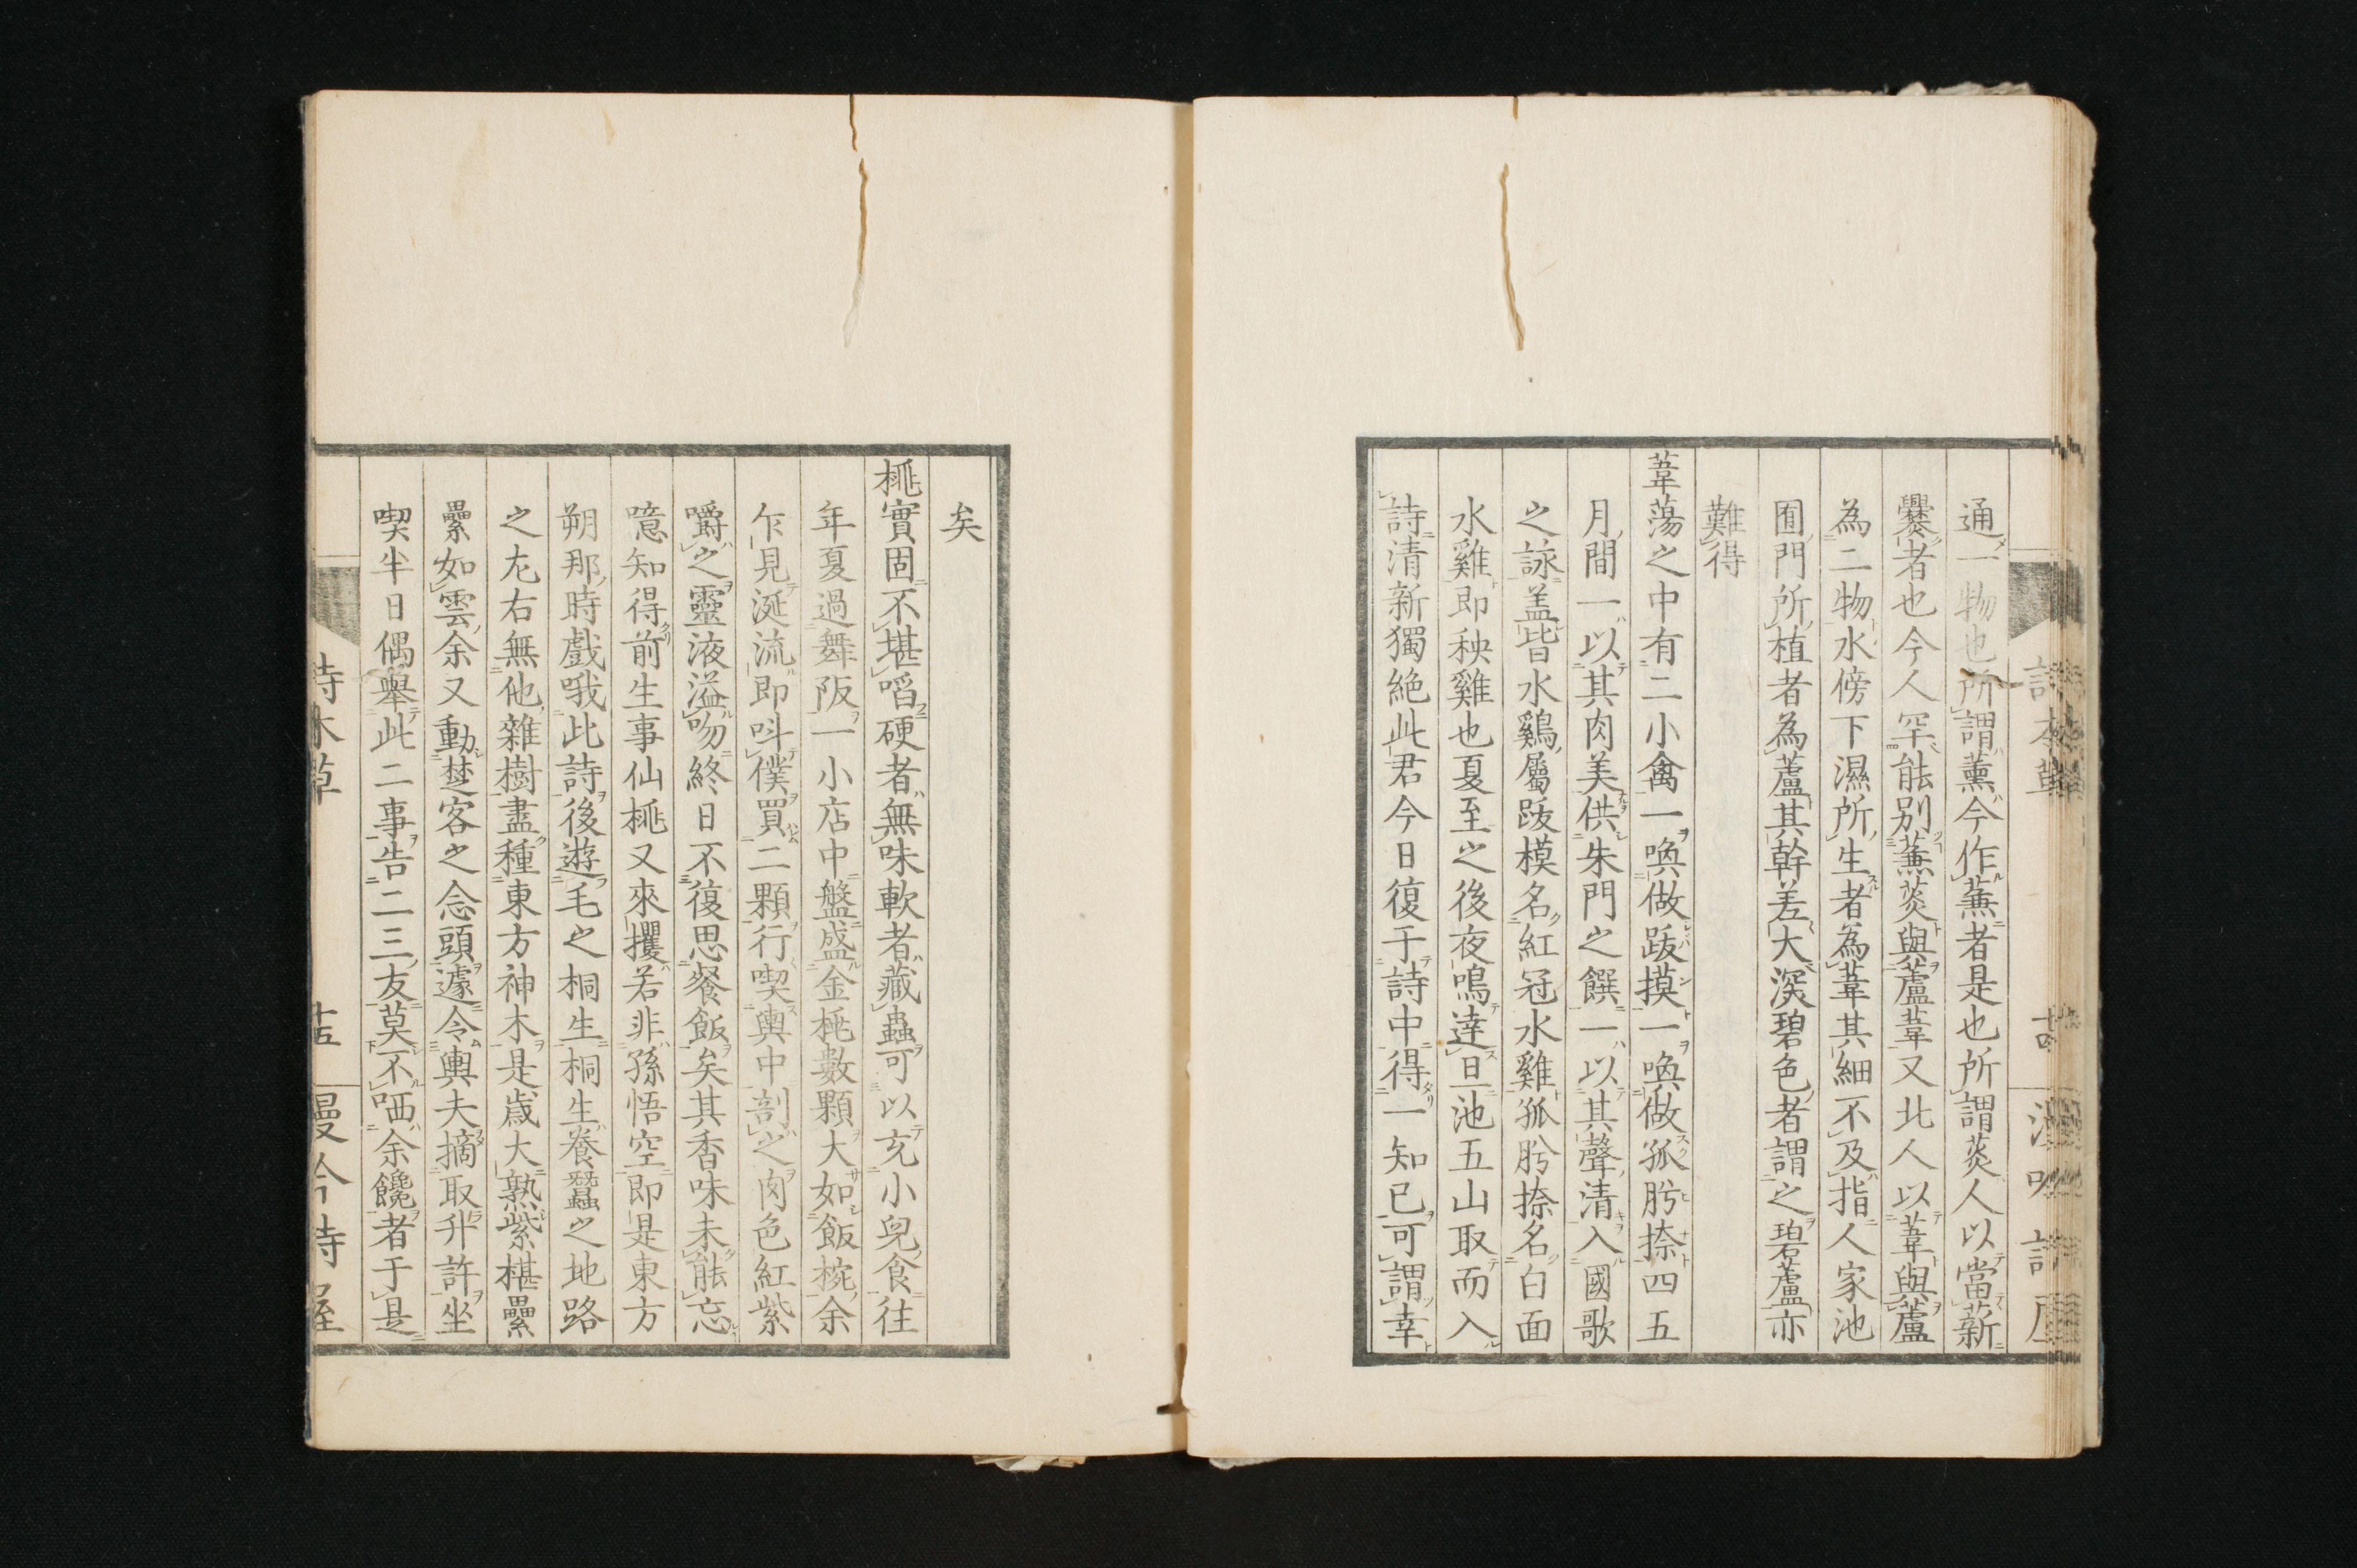 通一物也所謂薫今作蕪者是也所謂菼人以當薪
爨者也今人罕能別蕪菼與蘆葦又北人以葦與蘆
為二物水傍下濕所生者為葦其細不及指人家池
囿門所植者為蘆其幹差大深碧色者謂之碧蘆亦
難得
葦蕩之中有二小禽一喚做跋摸一喚做孤肹捺四五
月間一以其肉美供朱門之饌一以其聲清入國歌
之詠盖皆水鷄屬跋模名紅冠水雞孤肹捺名白面
水雞即秧雞也夏至之後夜鳴達旦池五山取而入
詩清新獨絶此君今日復于詩中得一知已可謂幸
矣
桃實固不堪啗硬者無味軟者藏蟲可以充小兒食往
年夏過舞阪一小店中盤盛金桃數顆大如飯椀余
乍見涎流即呌僕買二顆行喫輿中剖之肉色紅紫
嚼之靈液溢吻終日不復思餐飯矣其香味未能忘
噫知得前生事仙桃又來攫若非孫悟空即是東方
朔那時戲哦此詩後遊毛之桐生桐生養蠶之地路
之左右無他雜樹盡種東方神木是歳大熟紫椹纍
纍如雲余又動楚客之念頭遽令輿夫摘取升許坐
喫半日偶舉此二事告二三友莫不哂余饞者于是
詩本草
十五